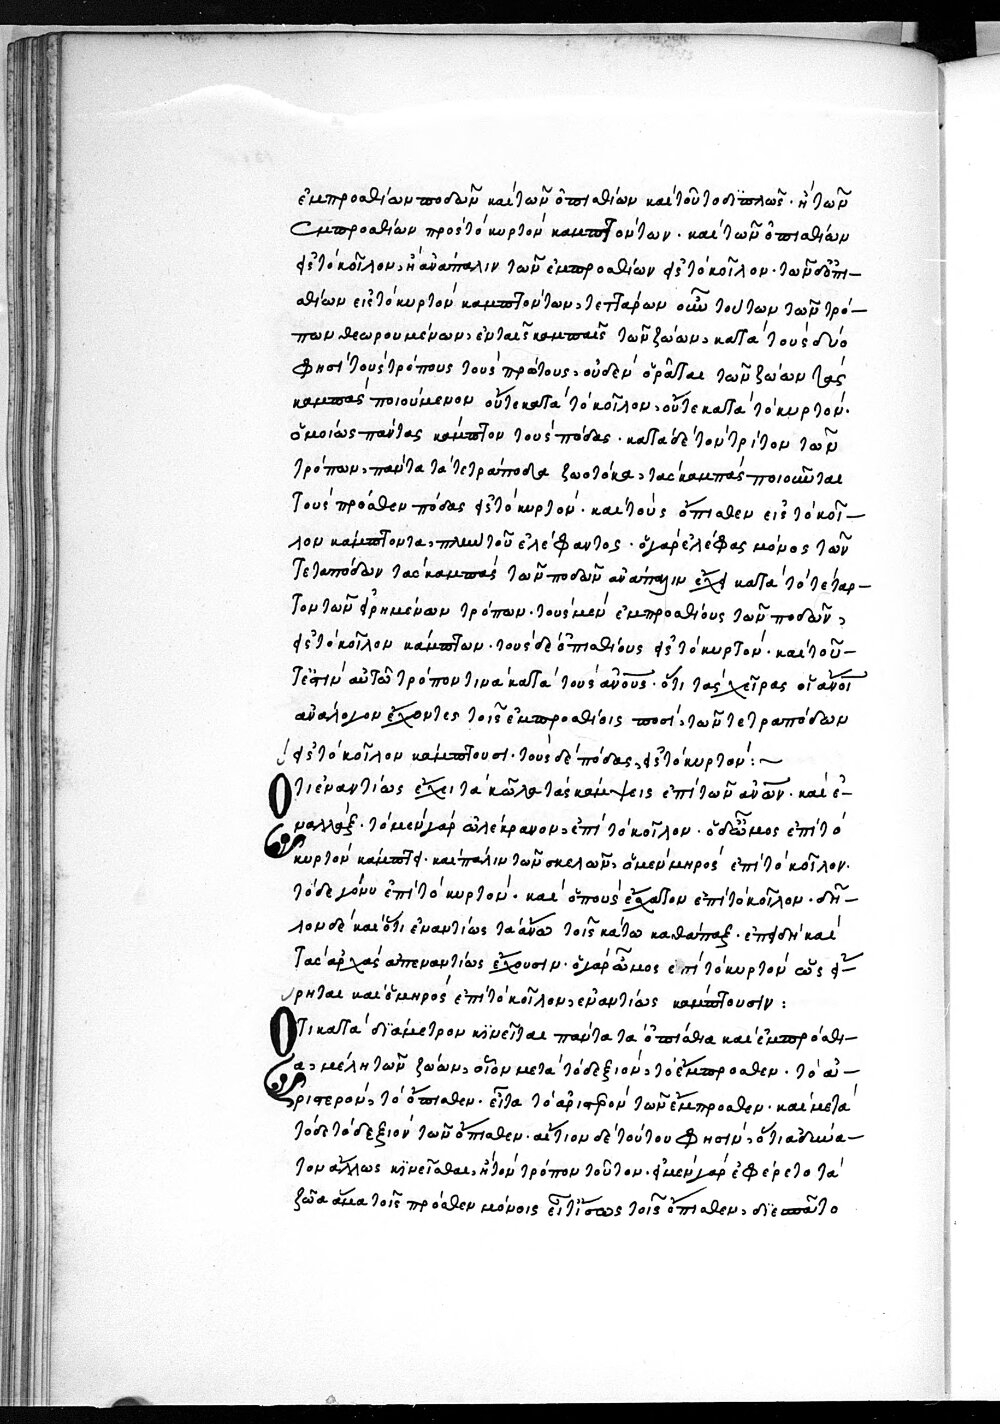 ἐμπροσθίων ποδῶν καὶ τῶν ὀπισθίων καὶ τοῦτο διπλῶς· ἢ τῶν
ἐμπροσθίων πρὸς τὸ κυρτὸν καμπτόντων· καὶ τῶν ὀπισθίων
εἰς τὸ κοῖλον, ἢ ἀνάπαλιν τῶν ἐμπροσθίων εἰς τὸ κοῖλον· τῶν δὲ ὀπι-
σθίων εἰς τὸ κυρτὸν καμπτόντων, τεττάρων οὖν τούτων τῶν τρό-
πων θεωρουμένων, ἐν ταῖς καμπαῖς τῶν ζώων, κατὰ τοὺς δύο
φησὶ τοὺς τρόπους τοὺς πρώτους, οὐδὲν ὁρᾶται τῶν ζώων τὰς
καμπὰς ποιούμενον οὔτε κατὰ τὸ κοῖλον, οὔτε κατὰ τὸ κυρτὸν·
ὁμοίως πάντας κάμπτον τοὺς πόδας· κατὰ δὲ τὸν τρίτον τῶν
τρόπων, πάντα τὰ τετράποδα ζωοτόκα, τὰς καμπὰς ποιοῦνται
τοὺς πρόσθεν πόδας εἰς τὸ κυρτὸν· καὶ τοὺς ὄπισθεν εἰς τὸ κοῖ-
λον κάμπτοντα, πλὴν τοῦ ἐλέφαντος· ὁ γὰρ ἐλέφας μόνος τῶν
τετραπόδων τὰς καμπὰς τῶν ποδῶν ἀνάπαλιν ἔχει κατὰ τὸ τέταρ-
τον τῶν εἰρημένων τρόπων· τοὺς μὲν ἐμπροσθίους τῶν ποδῶν,
εἰς τὸ κοῖλον κάμπτων· τοὺς δὲ ὀπισθίους εἰς τὸ κυρτὸν· καὶ τοῦ-
τ' ἔστιν αὐτῶ τρόπον τινὰ κατὰ τοὺς ἀνους· ὅτι τὰς χεῖρας οἱ ἀνοι
ἀνάλογον ἔχοντες τοῖς ἐμπροσθίοις ποσὶ, τῶν τετραπόδων
εἰς τὸ κοῖλον κάμπτουσι· τοὺς δὲ πόδας, εἰς τὸ κυρτὸν:~
Ὅτι ἐναντίως ἔχει τὰ κῶλα τὰς κάμψεις ἐπὶ τῶν ἀνων· καὶ ἐ-
ναλλάξ· τὸ μὲν γὰρ ὠλέκρανον, ἐπὶ τὸ κοῖλον· ὁ δ' ὦμος ἐπὶ τὸ
κυρτὸν κάμπτει· καὶ πάλιν τῶν σκελῶν, ὁ μὲν μηρὸς ἐπὶ τὸ κοῖλον·
τὸ δὲ γόνυ ἐπὶ τὸ κυρτὸν· καὶ ὁ ποὺς ἔσχατον ἐπὶ τὸ κοῖλον· δῆ-
λον δὲ καὶ ὅτι ἐναντίως τὰ ἄνω τοῖς κάτω καθάπαξ· ἐπειδὴ καὶ
τὰς ἀρχὰς ἀπεναντίως ἔχουσιν· ὁ γὰρ ὦμος ἐπὶ τὸ κυρτὸν ὡς εἴ-
ρηται καὶ ὁ μηρὸς ἐπὶ τὸ κοῖλον, ἐναντίως κάμπτουσιν:
Ὅτι κατὰ διάμετρον κινεῖται πάντα τὰ ὀπίσθια καὶ ἐμπρόσθι-
α, μέλη τῶν ζώων, οἷον μετὰ τὸ δεξιὸν, τὸ ἔμπροσθεν· τὸ ἀ-
ριστερὸν, τὸ ὄπισθεν· εἶτα τὸ ἀριστερὸν τῶν ἔμπροσθεν· καὶ μετὰ
τόδε τὸ δεξιὸν τῶν ὄπισθεν· αἴτιον δὲ τούτου φησὶν, ὅτι ἀδύνα-
τον ἄλλως κινεῖσθαι, ἢ τὸν τρόπον τοῦτον· εἰ μὲν γὰρ ἐφέρετο τὰ
ζῶα ἅμα τοῖς πρόσθεν μόνοις εἶτ' ἴσως τοῖς ὄπισθεν, διεσπᾶτο